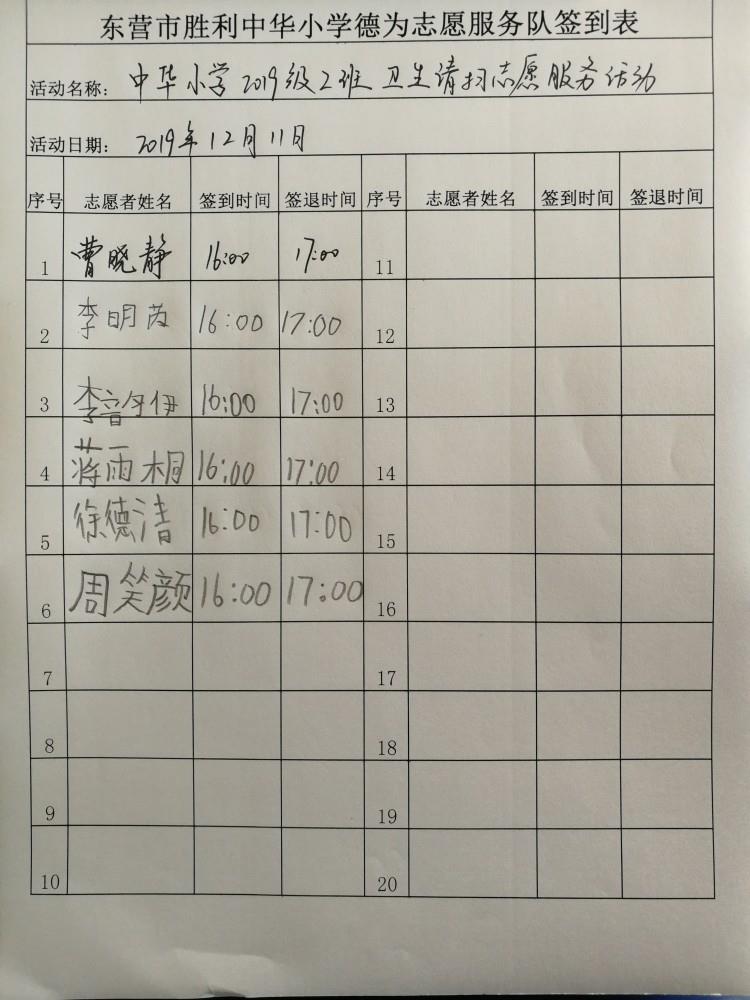 东营市胜利中华小学德为志愿服务队签到表
活动名称: 中华小学2019级2班 卫生请扫志愿服务活动
活动日期: 2019年12月11日
序号 志愿者姓名 签到时间 签退时间 序号 志愿者姓名 签到时间 签退时间
1 曹晓静 16:00 17:00 11
2 李明芮 16:00 17:00 12
3 李 伊 16:00 17:00 13
4 蒋雨桐 16:00 17:00 14
5 徐德清 16:00 17:00 15
6 周笑颜 16:00 17:00 16
7 17
8 18
9 19
10 20